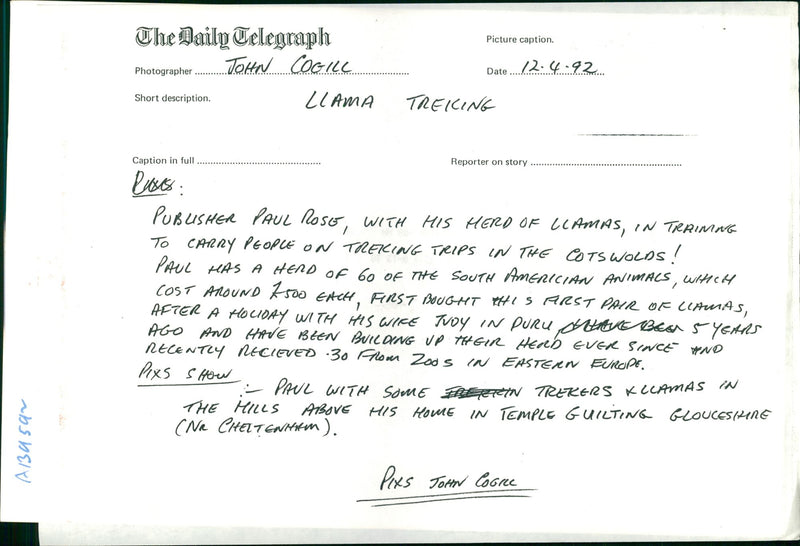 The Daily Telegraph
Picture caption.
Photographer ........ JOHN COGILL ........ Date ... 12.4.92 ...
Short description. LLAMA TREKING
Caption in full ........ Reporter on story ........
PUBLISHER PAUL ROSE, WITH HIS HERD OF LLAMAS, IN TRAINING
TO CARRY PEOPLE ON TREKING TRIPS IN THE COTSWOLDS!
PAUL HAS A HERD OF 60 OF THE SOUTH AMERICIAN ANIMALS, WHICH
COST AROUND £500 EACH, FIRST BOUGHT HIS FIRST PAIR OF LLAMAS,
AFTER A HOLIDAY WITH HIS WIFE JUDY IN PURU, 5 YEARS
AGO AND HAVE BEEN BUILDING UP THEIR HERD EVER SINCE AND
RECENTLY RECIEVED .30 FROM ZOOS IN EASTERN EUROPE.
PIXS SHOW
:- PAUL WITH SOME TREKERS & LLAMAS IN
THE HILLS ABOVE HIS HOME IN TEMPLE GUILTING GLOUCESHIRE
(NR CHELTENHAM).
PIXS JOHN COGILL